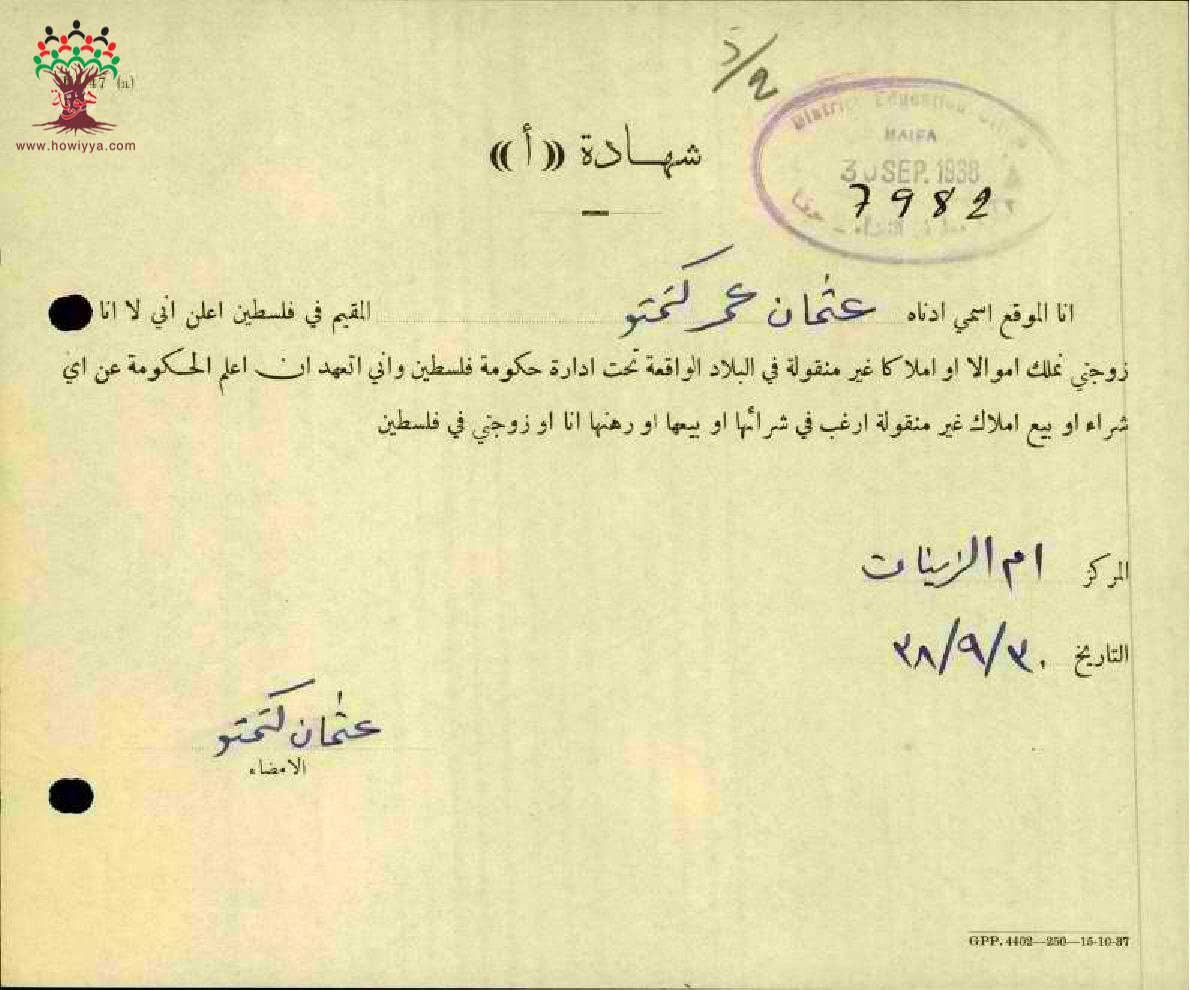 47 (a)
هوية
www.howiyya.com
District Education Office
HAIFA
30 SEP. 1938
7982
حيفا
شهادة «أ»
انا الموقع اسمي ادناه عثمان عمر كتمتو المقيم في فلسطين اعلن اني لا انا
زوجتي نملك اموالا او املاكا غير منقولة في البلاد الواقعة تحت ادارة حكومة فلسطين واني اتعهد ان اعلم الحكومة عن اي
شراء او بيع املاك غير منقولة ارغب في شرائها او بيعها او رهنها انا او زوجتي في فلسطين
المركز ام الزينات
التاريخ ٣٨/٩/٣٠
عثمان كتمتو
الامضاء
GPP. 4402—250—15-10-37